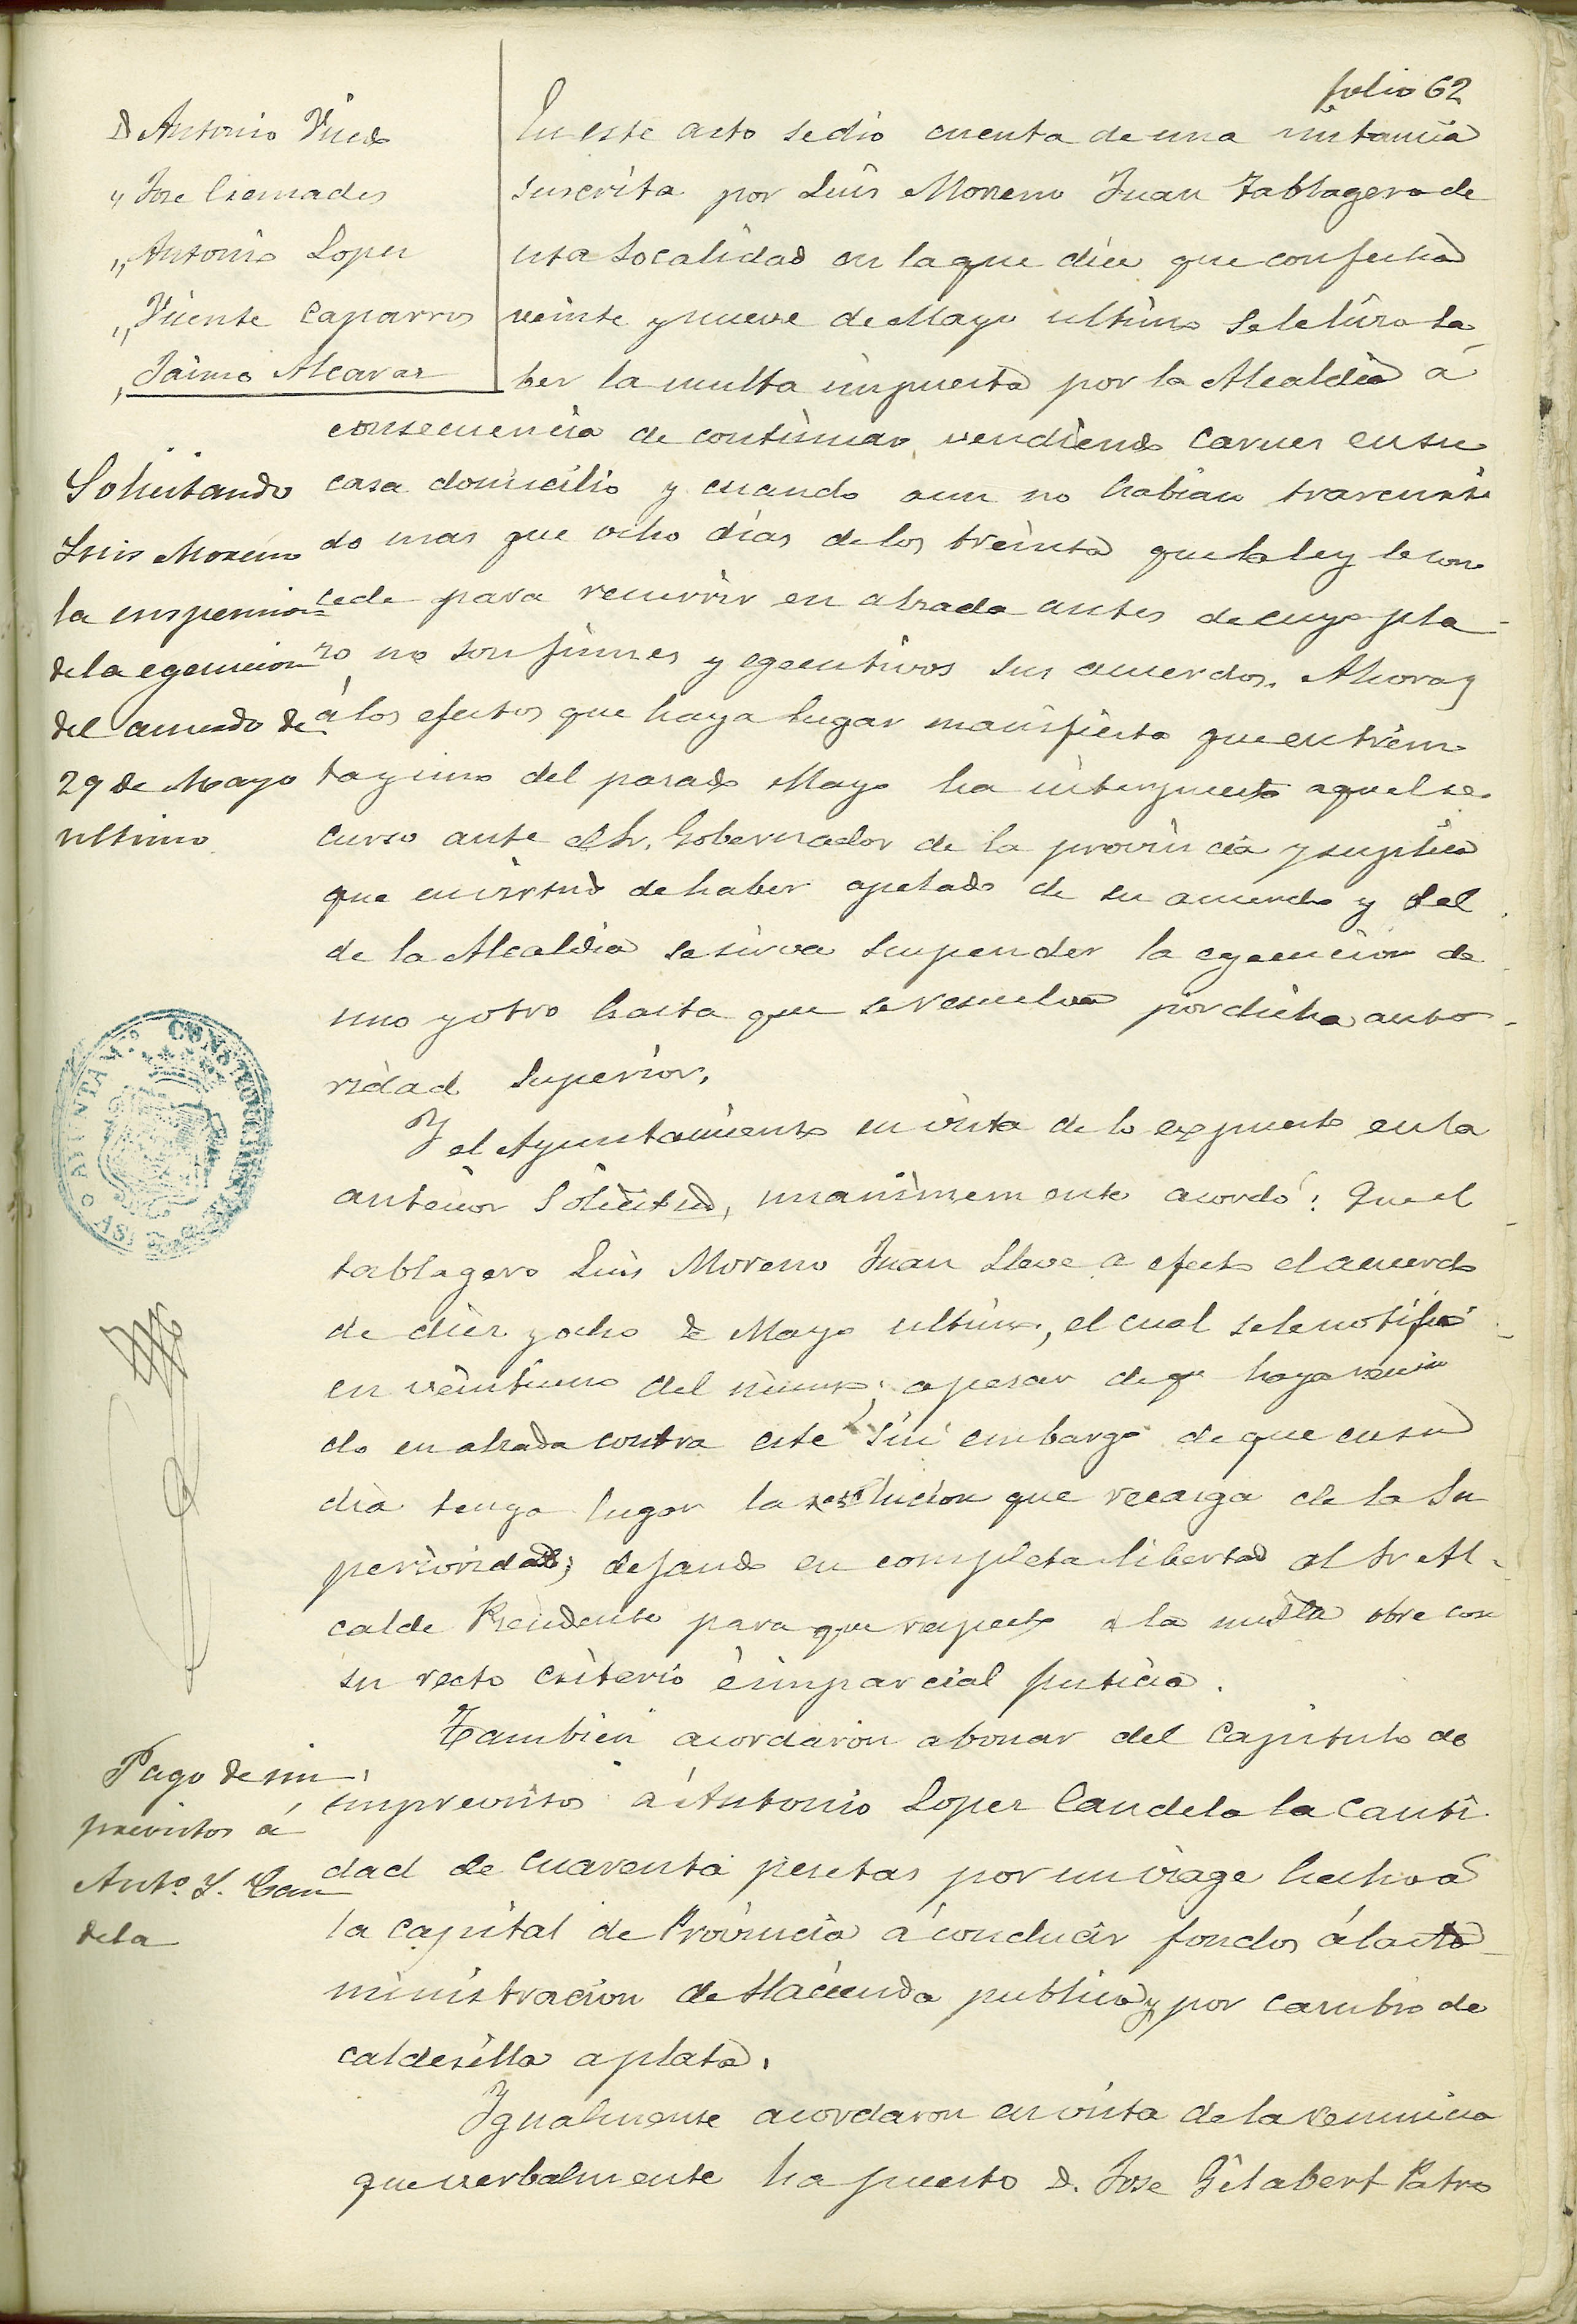 folio 62
D Antonio Pueds
" Jose Cremades
" Antonio Lopez
" Vicente Caparros
" Jaime Alcaraz
En este acto se dio cuenta de una instancia
suscrita por Luis Moreno Juan tablagero de
esta localidad en la que dice que con fecha
veinte y nueve de Mayo ultimo se le hizo sa-
ber la multa impuesta por la Alcaldia á
consecuencia de continuar vendiendo carnes en su
casa domicilio y cuando aun no habian trascurri
do mas que ocho dias de los treinta que la ley le con
cede para recurrir en alzada antes de cuyo pla-
zo no son firmes y egecutivos sus acuerdos. Ahora y
á los efectos que haya lugar manifiesta que en trein
ta y uno del pasado Mayo ha interpuesto aquel re-
curso ante el Sr. Gobernador de la provincia y suplica
que en virtud de haber apelado de su acuerdo y del
de la Alcaldia se sirva suspender la egecucion de
uno y otro hasta que se resuelva por dicha auto-
ridad superior.
Solicitando
Luis Moreno
la suspension
de la egecucion
del acuerdo de
29 de Mayo
ultimo
AYUNTAM.º CONSTITUCIONAL
Y el Ayuntamiento en vista de lo expuesto en la
anterior solicitud, unanimemente acordó: Que el
tablagero Luis Moreno Juan lleve a efecto el acuerdo
de diez y ocho de Mayo ultimo, el cual se le notificó
en veintiuno del mismo; apesar de qe haya recurri
do en alzada contra este sin embargo de que en su
dia tenga lugar la resolucion que recaiga de la Su
perioridad; dejando en completa libertad al Sr Al-
calde Presidente para que respecto a la multa obre con
su recto criterio é imparcial justicia.
Tambien acordaron abonar del capitulo de
imprevistos á Antonio Lopez Candela la canti
dad de cuarenta pesetas por un viage hecho á
la capital de Provincia á conducir fondos á la Ad
ministracion de Hacienda publica y por cambio de
calderilla a plata.
Pago de im
previstos á
Antº L. Can
dela
Igualmente acordaron en vista de la renuncia
que verbalmente ha puesto D. Jose Gilabert Patro